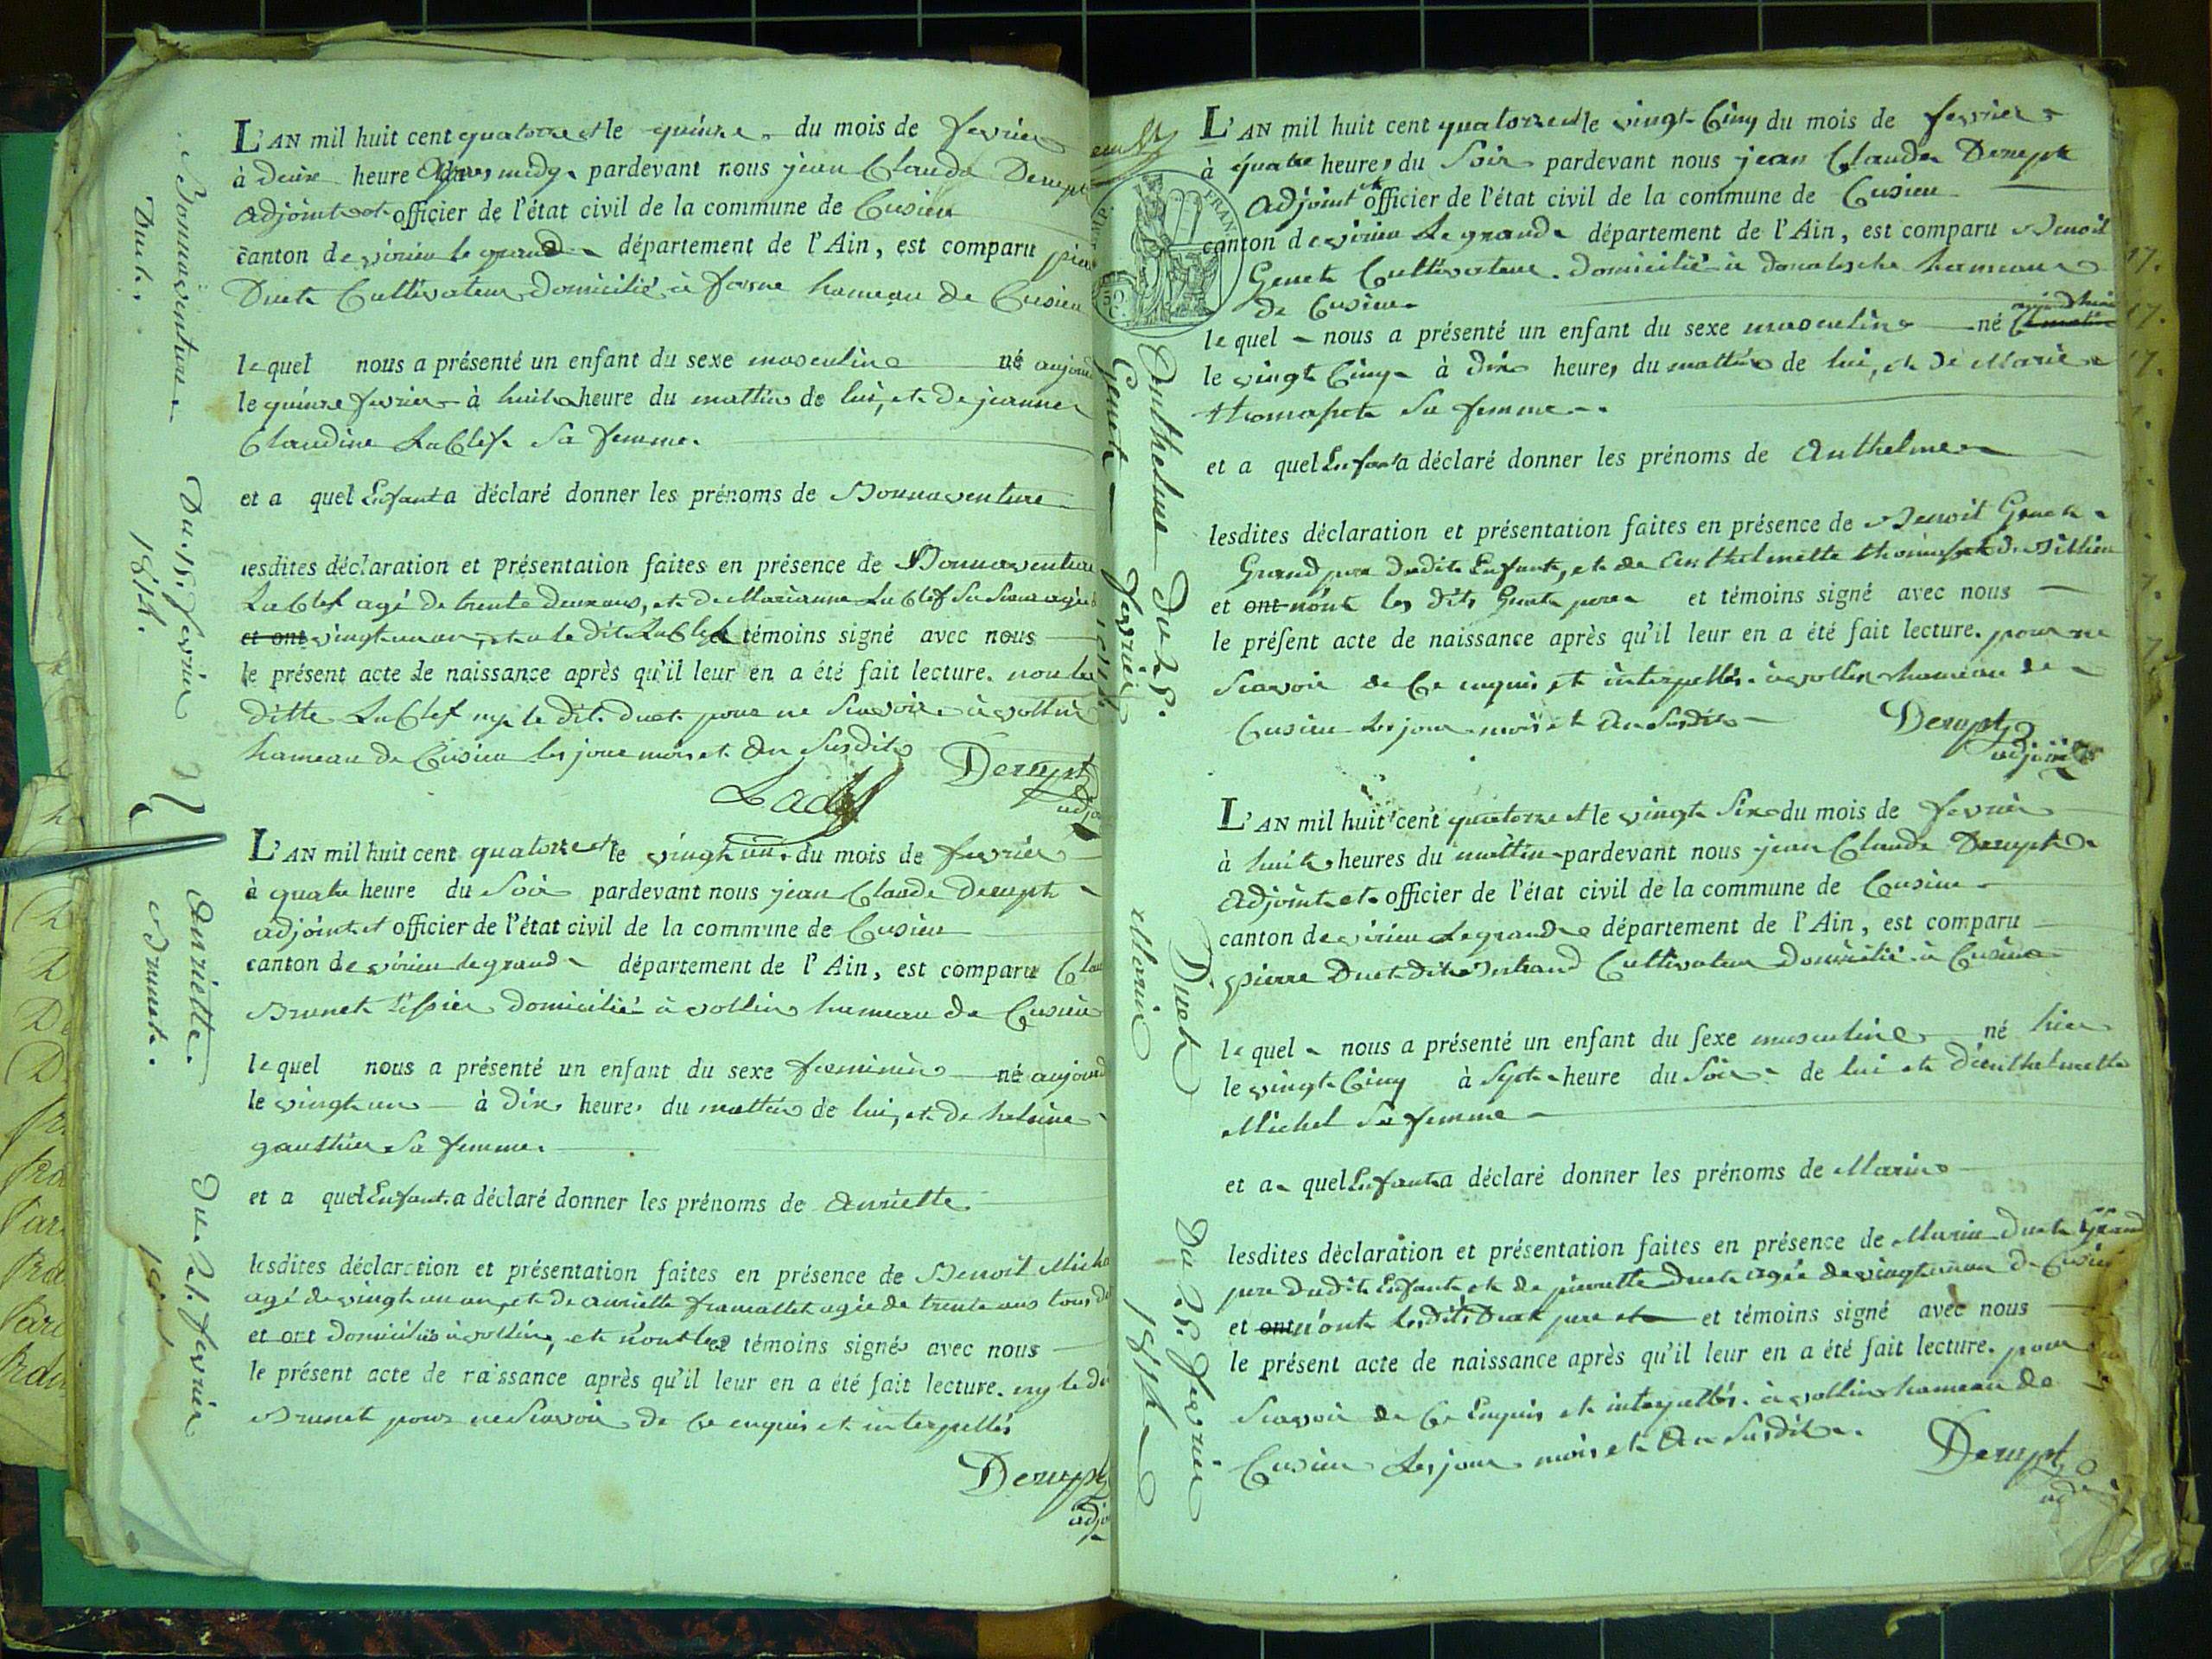 Bonnaventure
Duet.
Du. 15. fevrier
1814.
L'AN mil huit cent quatorze et le quinze du mois de fevrier
à deux heure Apres midy pardevant nous jean Claude Derupt
Adjoint et officier de l'état civil de la commune de Cusieu
canton de virieu le grand département de l'Ain, est comparu
Duet Cultivateur domicilié à hameau de Cusieu
le quel nous a présenté un enfant du sexe masculine né
le quinze fevrier à huit heure du mattin de lui, et de jeanne
Claudine LaClef sa femme.
et a quel Enfant a déclaré donner les prénoms de Bonnaventure
lesdites déclaration et présentation faites en présence de Bonnaventure
LaClef agé de trente deux ans, et de Marianne LaClef sa soeur agée
et ont vingt un an, et a le dit LaClef témoins signé avec nous
le présent acte de naissance après qu'il leur en a été fait lecture. non la
ditte LaClef ny le dit. duet pour ne scavoir à vollin
hameau de Cusieu les jour mois et An susdits
Derupt
Laclef
Anriette.
Brunet.
Du 21. fevrier
L'AN mil huit cent quatorze et le vingt un. du mois de fevrier
à quatre heure du Soir pardevant nous jean Claude derupt
adjoint et officier de l'état civil de la commune de Cusieu
canton de virieu le grand département de l'Ain, est comparu
Brunet domicilié à vollin hameau de Cusieu
le quel nous a présenté un enfant du sexe feminin né
le vingt un à dix heures du mattin de lui, et de helaine
gauthier sa femme.
et a quel Enfant a déclaré donner les prénoms de Anriette
lesdites déclaration et présentation faites en présence de Benoit
agé de vingt un an, et de anriette agée de trente ans tous
et ont domiciliés à vollin, et n'ont les témoins signés avec nous
le présent acte de naissance après qu'il leur en a été fait lecture. ny le
Brunet pour ne scavoir de ce enquis et interpellés
Derupt
Anthelme
Genet
Du 25.
fevrier
1814.
IMP. FRAN.
L'AN mil huit cent quatorze et le vingt Cinq du mois de fevrier
à quatre heures du Soir pardevant nous jean Claude Derupt
Adjoint et officier de l'état civil de la commune de Cusieu
canton de virieu Le grand département de l'Ain, est comparu Benoit
Genet Cultivateur domicilié à hameau
de Cusieu
aujourd'hui
le quel nous a présenté un enfant du sexe masculin né
le vingt Cinq à dix heures du mattin de lui, et de Marie
sa femme
et a quel Enfant a déclaré donner les prénoms de Anthelme
lesdites déclaration et présentation faites en présence de Benoit Genet
Grand pere dudit Enfant, et de Anthelmette
et ont n'ont les dits Genet pere et témoins signé avec nous
le présent acte de naissance après qu'il leur en a été fait lecture. pour ne
scavoir de Ce enquis et interpellés. à vollin hameau de
Cusieu les jour mois et An susdits
Derupt
adjoint
Marin
Duet
Du 25. fevrier
1814
L'AN mil huit cent quatorze et le vingt Six du mois de fevrier
à huit heures du mattin pardevant nous jean Claude Derupt
Adjoint et officier de l'état civil de la commune de Cusieu
canton de virieu Le grand département de l'Ain, est comparu
pierre Duet dit Cultivateur domicilié à Cusieu
le quel nous a présenté un enfant du sexe masculine né hier
le vingt Cinq à Sept heure du Soir de lui et d'anthelmette
Michel sa femme
et a quel Enfant a déclaré donner les prénoms de Marin
lesdites déclaration et présentation faites en présence de Marin duet Grand
pere dudit Enfant et de pierrette Duet agée de vingt un an de Cusieu
et ont n'ont lesdits Duet pere et et témoins signé avec nous
le présent acte de naissance après qu'il leur en a été fait lecture. pour
scavoir de Ce Enquis et interpellés. à vollin hameau de
Cusieu Les jour mois et An susdits.
Derupt